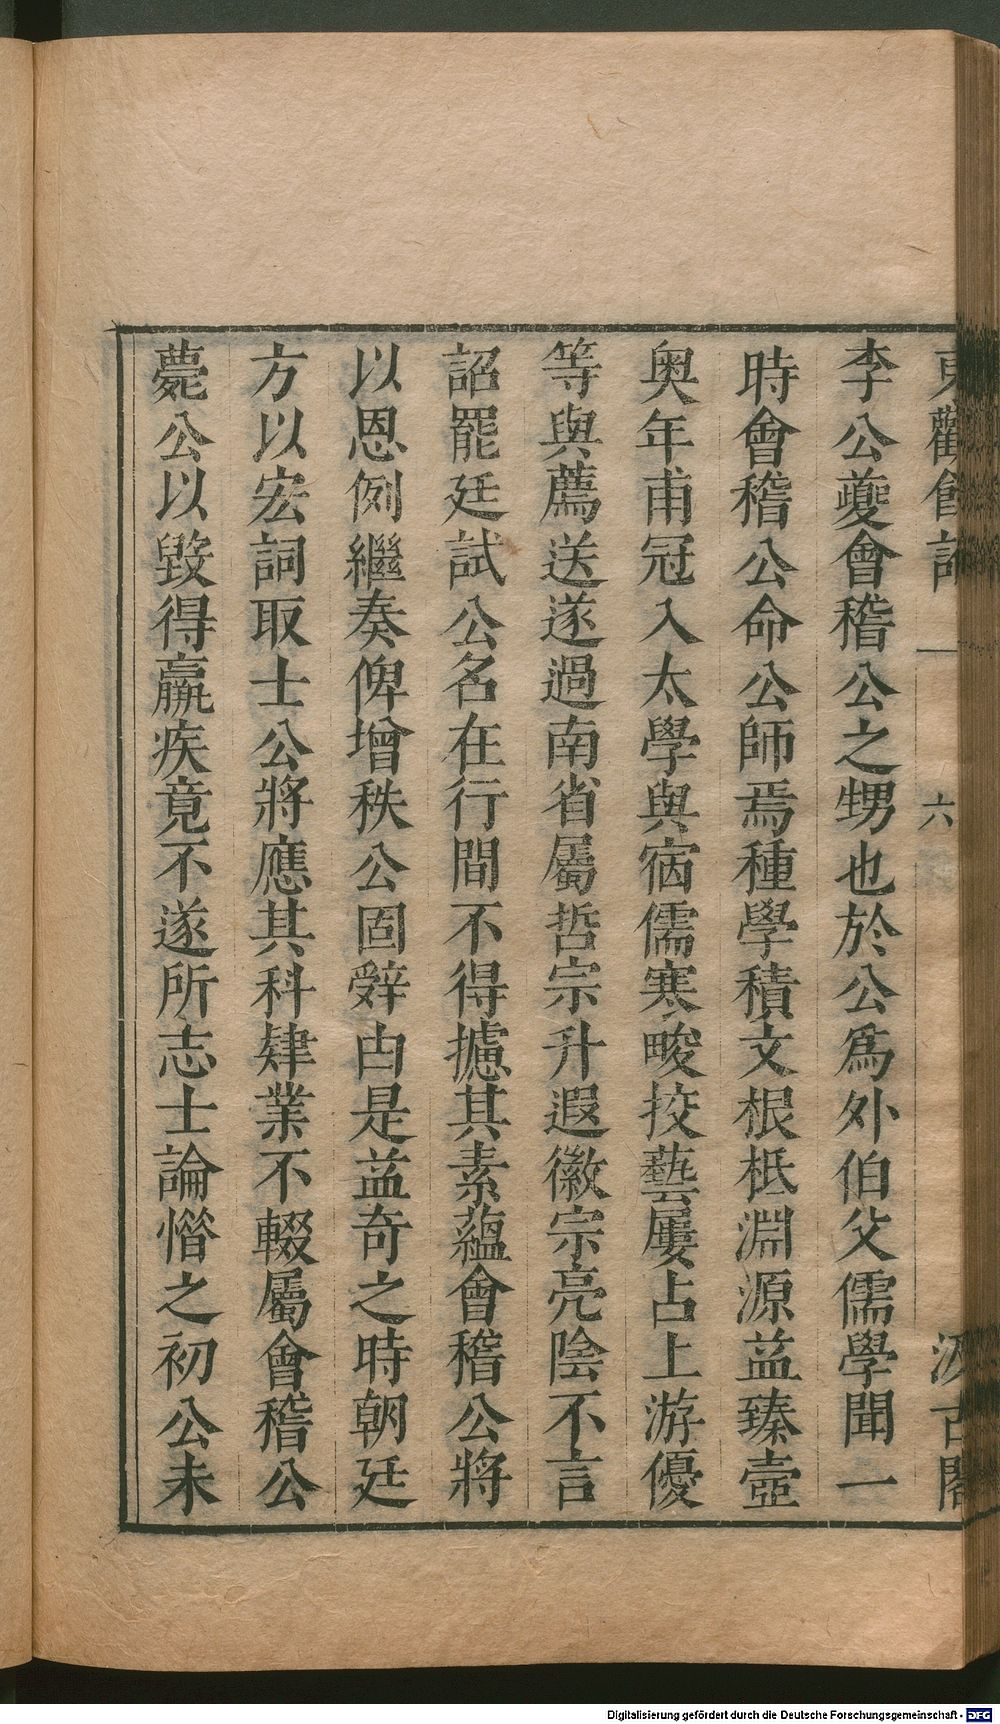 東觀餘論
六
汲古閣
李公夔會稽公之甥也於公爲外伯父儒學聞一
時會稽公命公師焉種學積文根柢淵源益臻壺
奥年甫冠入太學與宿儒寒畯挍藝屢占上游優
等與薦送遂過南省屬哲宗升遐徽宗亮陰不言
詔罷廷試公名在行間不得攄其素蘊會稽公將
以恩例繼奏俾增秩公固辤由是益奇之時朝廷
方以宏詞取士公將應其科肄業不輟屬會稽公
薨公以毀得羸疾竟不遂所志士論惜之初公未
Digitalisierung gefördert durch die Deutsche Forschungsgemeinschaft - DFG